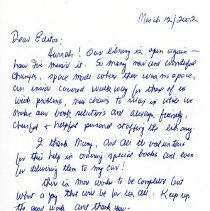 March 12/2002
Dear Editor,
Hurrah! Our library is open again -
how I've missed it. So many new and wonderful
changes, space made when there was no space,
an inside covered walkway for those of us
with problems, new chairs to relax in while we
make our book selections and always friendly,
cheerful & helpful personnel staffing the library.
I thank Mary, and all the volunteers
for this help in ordering special books and even
for delivering them to my car!
There is more work to be completed but
what a joy this will be for us all. Keep up
the good work and thank you -